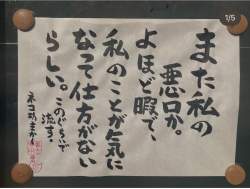 また私の
悪口か。
よほど暇で、
私のことが気に
なって仕方がない
らしい。
このぐらいで
流す。
1/5